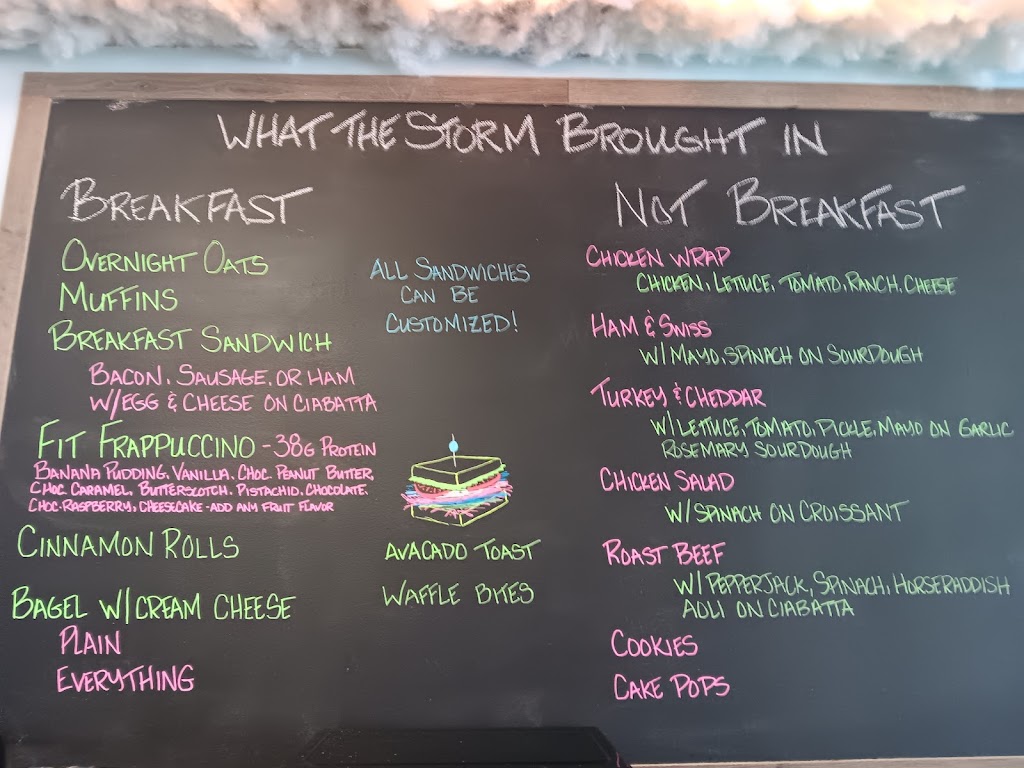 WHAT THE STORM BROUGHT IN
BREAKFAST
OVERNIGHT OATS
MUFFINS
BREAKFAST SANDWICH
BACON, SAUSAGE, OR HAM
W/EGG & CHEESE ON CIABATTA
FIT FRAPPUCCINO - 38G PROTEIN
BANANA PUDDING, VANILLA, CHOC PEANUT BUTTER,
CHOC CARAMEL, BUTTERSCOTCH, PISTACHIO, CHOCOLATE,
CHOC-RASPBERRY, CHEESECAKE - ADD ANY FRUIT FLAVOR
CINNAMON ROLLS
BAGEL W/CREAM CHEESE
PLAIN
EVERYTHING
ALL SANDWICHES
CAN BE
CUSTOMIZED!
AVACADO TOAST
WAFFLE BITES
NOT BREAKFAST
CHICKEN WRAP
CHICKEN, LETTUCE, TOMATO, RANCH, CHEESE
HAM & SWISS
W/MAYO, SPINACH ON SOURDOUGH
TURKEY & CHEDDAR
W/LETTUCE, TOMATO, PICKLE, MAYO ON GARLIC
ROSEMARY SOURDOUGH
CHICKEN SALAD
W/SPINACH ON CROISSANT
ROAST BEEF
W/PEPPERJACK, SPINACH, HORSERADDISH
AOLI ON CIABATTA
COOKIES
CAKE POPS